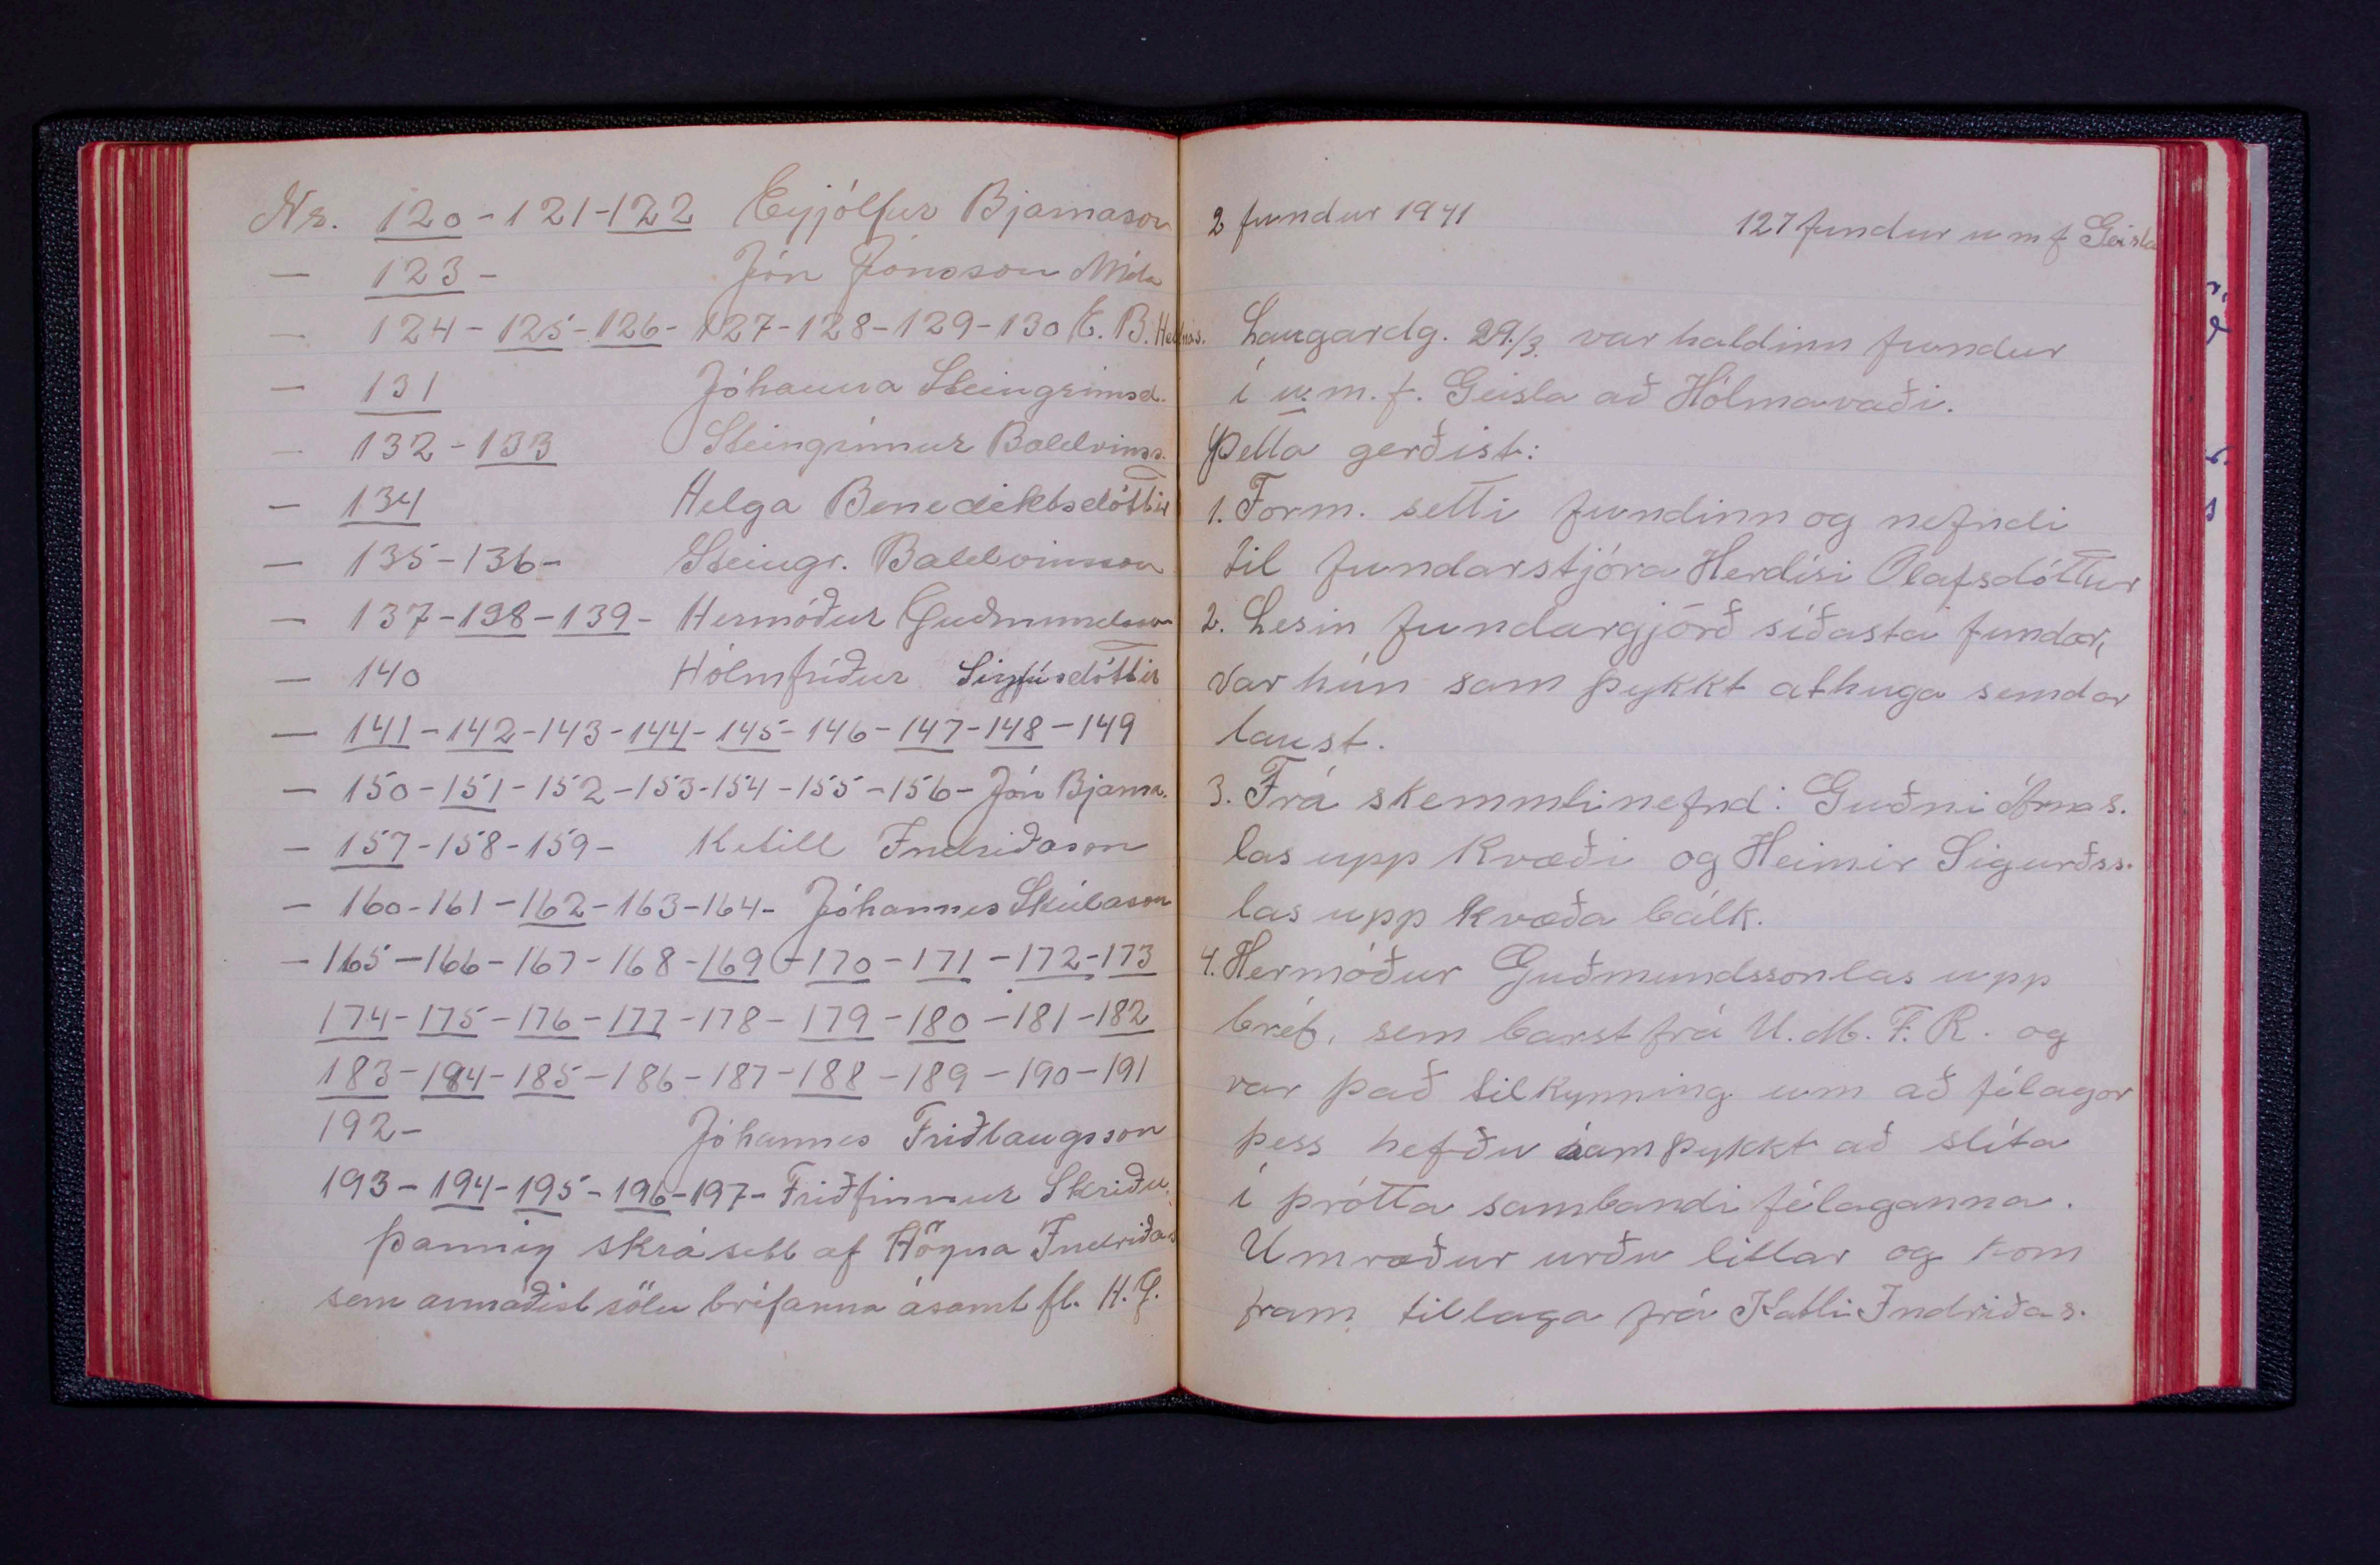 Nr. 120-121-122 Eyjólfur Bjarnason
— 123- Jón Jónsson
— 124-125-126-127-128-129-130 E. B.
— 131 Jóhanna Steingrímsd.
— 132-133 Steingrímur Baldvinss.
— 134 Helga Benediktsdóttir
— 135-136- Steingr. Baldvinsson
— 137-138-139- Hermóður Guðmundsson
— 140 Hólmfríður Sigfúsdóttir
— 141-142-143-144-145-146-147-148-149
— 150-151-152-153-154-155-156- Jón Bjarna.
— 157-158-159- Ketill Indriðason
— 160-161-162-163-164- Jóhannes Skúlason
— 165-166-167-168-169-170-171-172-173
174-175-176-177-178-179-180-181-182
183-184-185-186-187-188-189-190-191
192- Jóhannes Friðlaugsson
193-194-195-196-197- Friðfinnur Skriðu.
þannig skrásett af Högna Indriðas
sem annaðist sölu bréfanna ásamt fl. H.G.
2 fundur 1941 127 fundur u m f Geisla
Laugardg. 29./3. var haldinn fundur
í u.m.f. Geisla að Hólmavaði.
Þetta gerðist:
1. Form. setti fundinn og nefndi
til fundarstjóra Herdísi Ólafsdóttur
2. Lesin fundargjörð síðasta fundar,
var hún sam þykkt athuga semdar
laust.
3. Frá skemmtinefnd: Guðni Árnas.
las upp kvæði og Heimir Sigurðss.
las upp kvæða bálk.
4. Hermóður Guðmundsson las upp
bréf, sem barst frá U.M.F.R. og
var það tilkynning um að félagar
þess hefðu samþykkt að slíta
í þrótta sambandi félaganna.
Umræður urðu litlar og kom
fram tillaga frá Katli Indriðas.